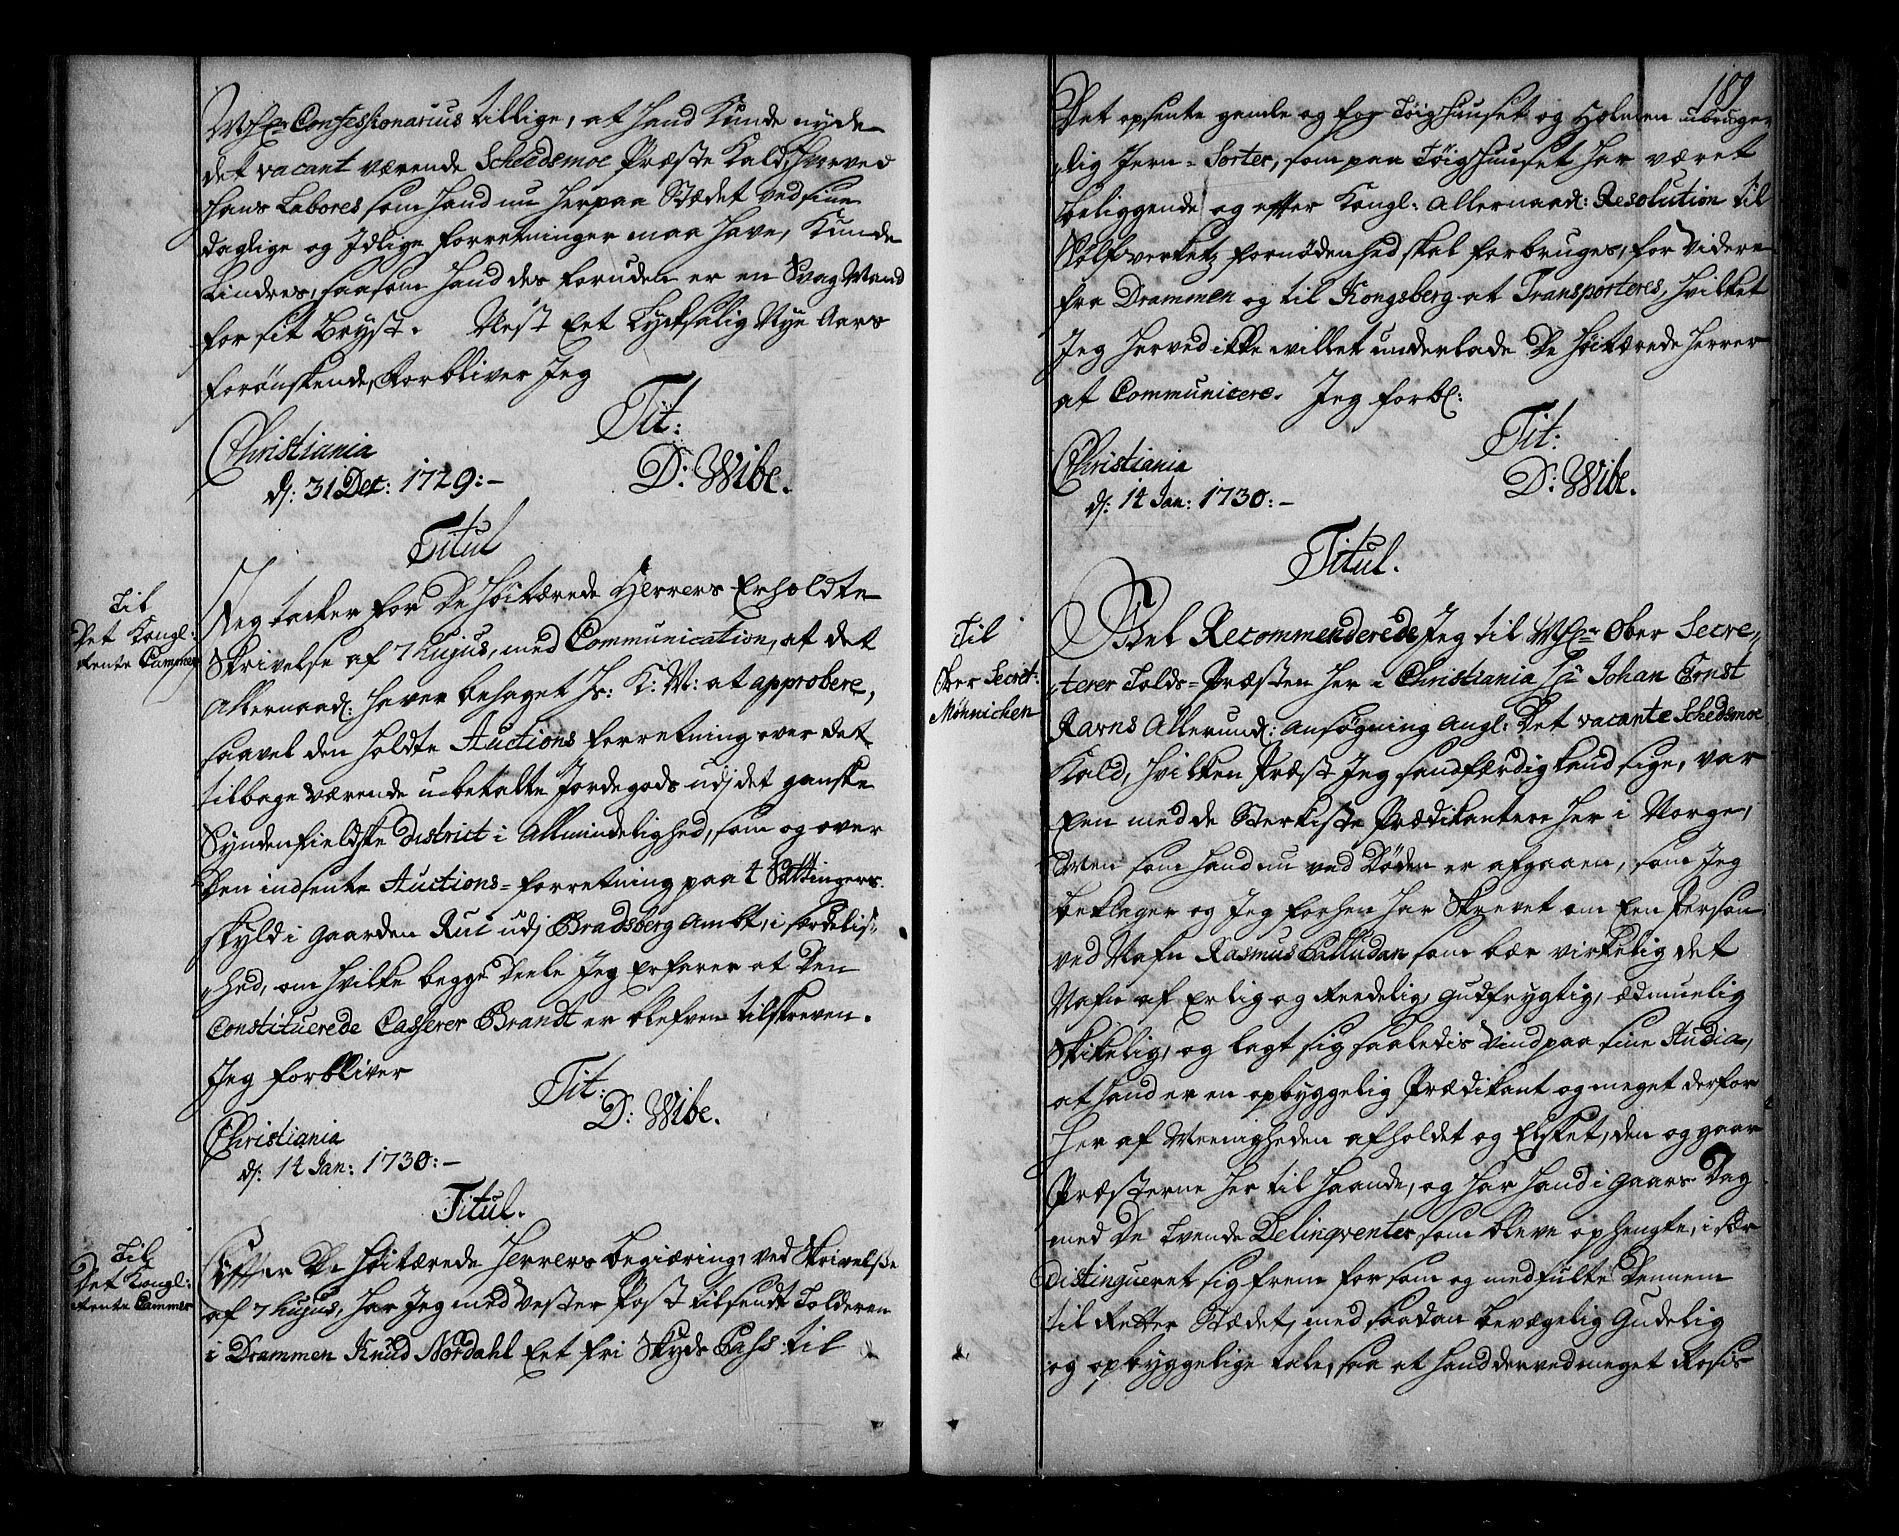 Confessionarius tillige, at hand kunde nyde
det vacant værende Schedsmoe Præste Kald, hvorved
hans Labores som hand nu her paa Stædet ved sine
daglige og Idlige forretninger maa have, kunde
Lindres, saasom hand des foruden er en Svag Mand
for sit Bryst. Nest Eet Lycksalig Nye Aars
forønskende, forbliver Jeg
Tit:
Christiania
D: Wibe.
d: 31 Dec: 1729:-
Titul
Til
Det Kongl:
Rente Cammer
Jeg tacker for De Høitærede Herrers Erholdte
Skrivelse af 7 hujus, med Communication, at det
Allernaad: haver behaget Hs: K: M: at approbere,
saavel den holdte Auctions forretning over det
tilbage værende u-betalte Jordegods udj det ganske
Syndenfieldske district i Allmindelighed, som og over
Den indsente Auctions-forretning paa 4 Sættingers
skyld i Gaarden Rui udj Bradsberg Ambt, i særdelis-
hed, om hvilke begge Deele Jeg Erfarer at Den
Constituerede Casserer Brandt er blefven tilskreven.
Jeg forbliver
Tit:
D: Wibe.
Christiania
d: 14 Jan: 1730:-
Titul.
Til
Det Kongl:
Rente Cammer
Efter De Høitærede Herrers begiæring, ved Skrivelse
af 7 hujus, har Jeg med Vester Post tilsendt Tolderen
i Drammen Knud Nordahl Eet fri Skyds Pass til
189
Det opsente gamle og for Tøighuuset og Holmen ubruge-
lig Jern-Sorter, som paa Tøighuuset har været
beliggende og efter Kongl: Allernaad: Resolution til
Sølfverketz fornødenhed skal forbruges, for videre
fra Drammen og til Kongsberg at Transporteres, hvilket
Jeg herved ikke villet underlade De Høitærede Herrer
at Communicere. Jeg forbl:
Tit:
Christiania
D: Wibe.
d: 14 Jan: 1730:-
Titul.
Til
Ober Secret:
Møhnichen
Vel Recommenderede Jeg til Ober Secre-
terer Tolds-Præsten her i Christiania Johan Ernst
Ravns Allerund: Ansøgning Angl: Det vacante Schedsmoe
Kald, hvilken Præst Jeg sandfærdig kand sige, var
Een med de Sterkiste Prædikantere her i Norge,
Men som hand nu ved Døden er afgaaen, som Jeg
beklager og Jeg forhen har Skrevet om Een Person
ved Nafn Rasmus Palludan, som bær virkelig det
Nafn af Erlig og Reedelig, Gudfrygtig, ædmuelig
Skikelig, og lagt sig saaledis Vind paa sine Studia,
at hand er en opbyggelig Prædikant og meget derfor
her af Meenigheden afholdet og Elsket, den og gaar
Præsterne her til haande, og har hand i Gaars Dag
med De Tvende Delinqventer, som bleve ophengte, i sær
Distingueret sig frem for som og medfulte Dennem
til Retter Stædet, med saadan bevægelig Gudelig
og opbyggelige tale, saa at hand derved meget Rosis